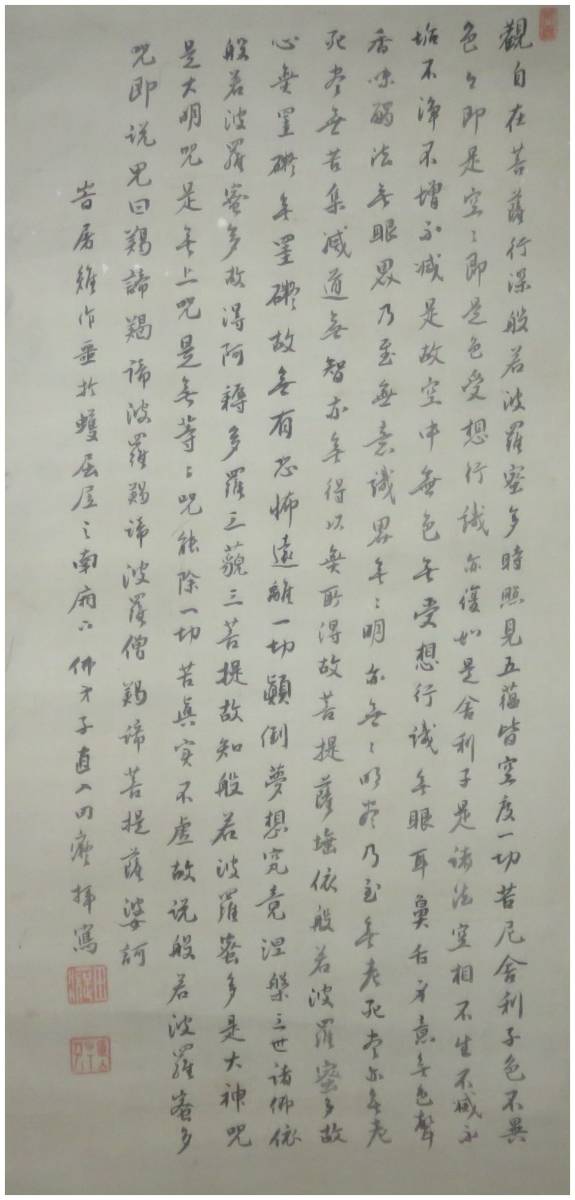 觀自在菩薩行深般若波羅蜜多時照見五蘊皆空度一切苦厄舍利子色不異
色々即是空々即是色受想行識亦復如是舍利子是諸法空相不生不滅不
垢不淨不增不減是故空中無色無受想行識無眼耳鼻舌身意無色聲
香味觸法無眼界乃至無意識界無々明亦無々明盡乃至無老死盡亦無老
死盡無苦集滅道無智亦無得以無所得故菩提薩埵依般若波羅蜜多故
心無罣礙無罣礙故無有恐怖遠離一切顛倒夢想究竟涅槃三世諸佛依
般若波羅蜜多故得阿耨多羅三藐三菩提故知般若波羅蜜多是大神咒
是大明咒是無上咒是無等々咒能除一切苦真实不虛故说般若波羅蜜多
咒即说咒曰羯諦羯諦波羅羯諦波羅僧羯諦菩提薩婆訶
屠雖作垂於蠖屈居之南窗下佛弟子直入田癡拝寫